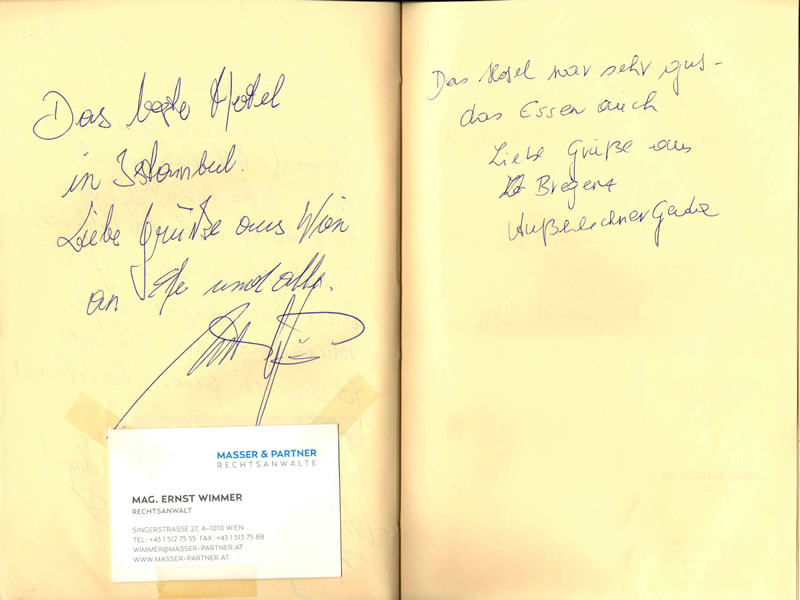 Das beste Hotel
in Istambul.
Liebe Grüße aus Wien
an und alle.
MASSER & PARTNER
RECHTSANWÄLTE
MAG. ERNST WIMMER
RECHTSANWALT
SINGERSTRASSE 27, A-1010 WIEN
TEL: +43 1 512 75 55 FAX: +43 1 513 75 88
WIMMER@MASSER-PARTNER.AT
WWW.MASSER-PARTNER.AT
Das Hotel war sehr gut -
das Essen auch
Liebe Grüße aus
Bregenz